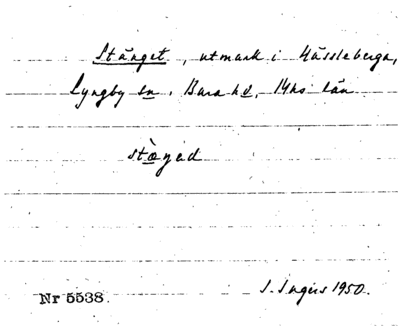 Stänget, utmark i Hässleberga,
Lyngby sn. Bara hd, Mhs län
stæŋəd
Nr 5538.
S. Ingers 1950.